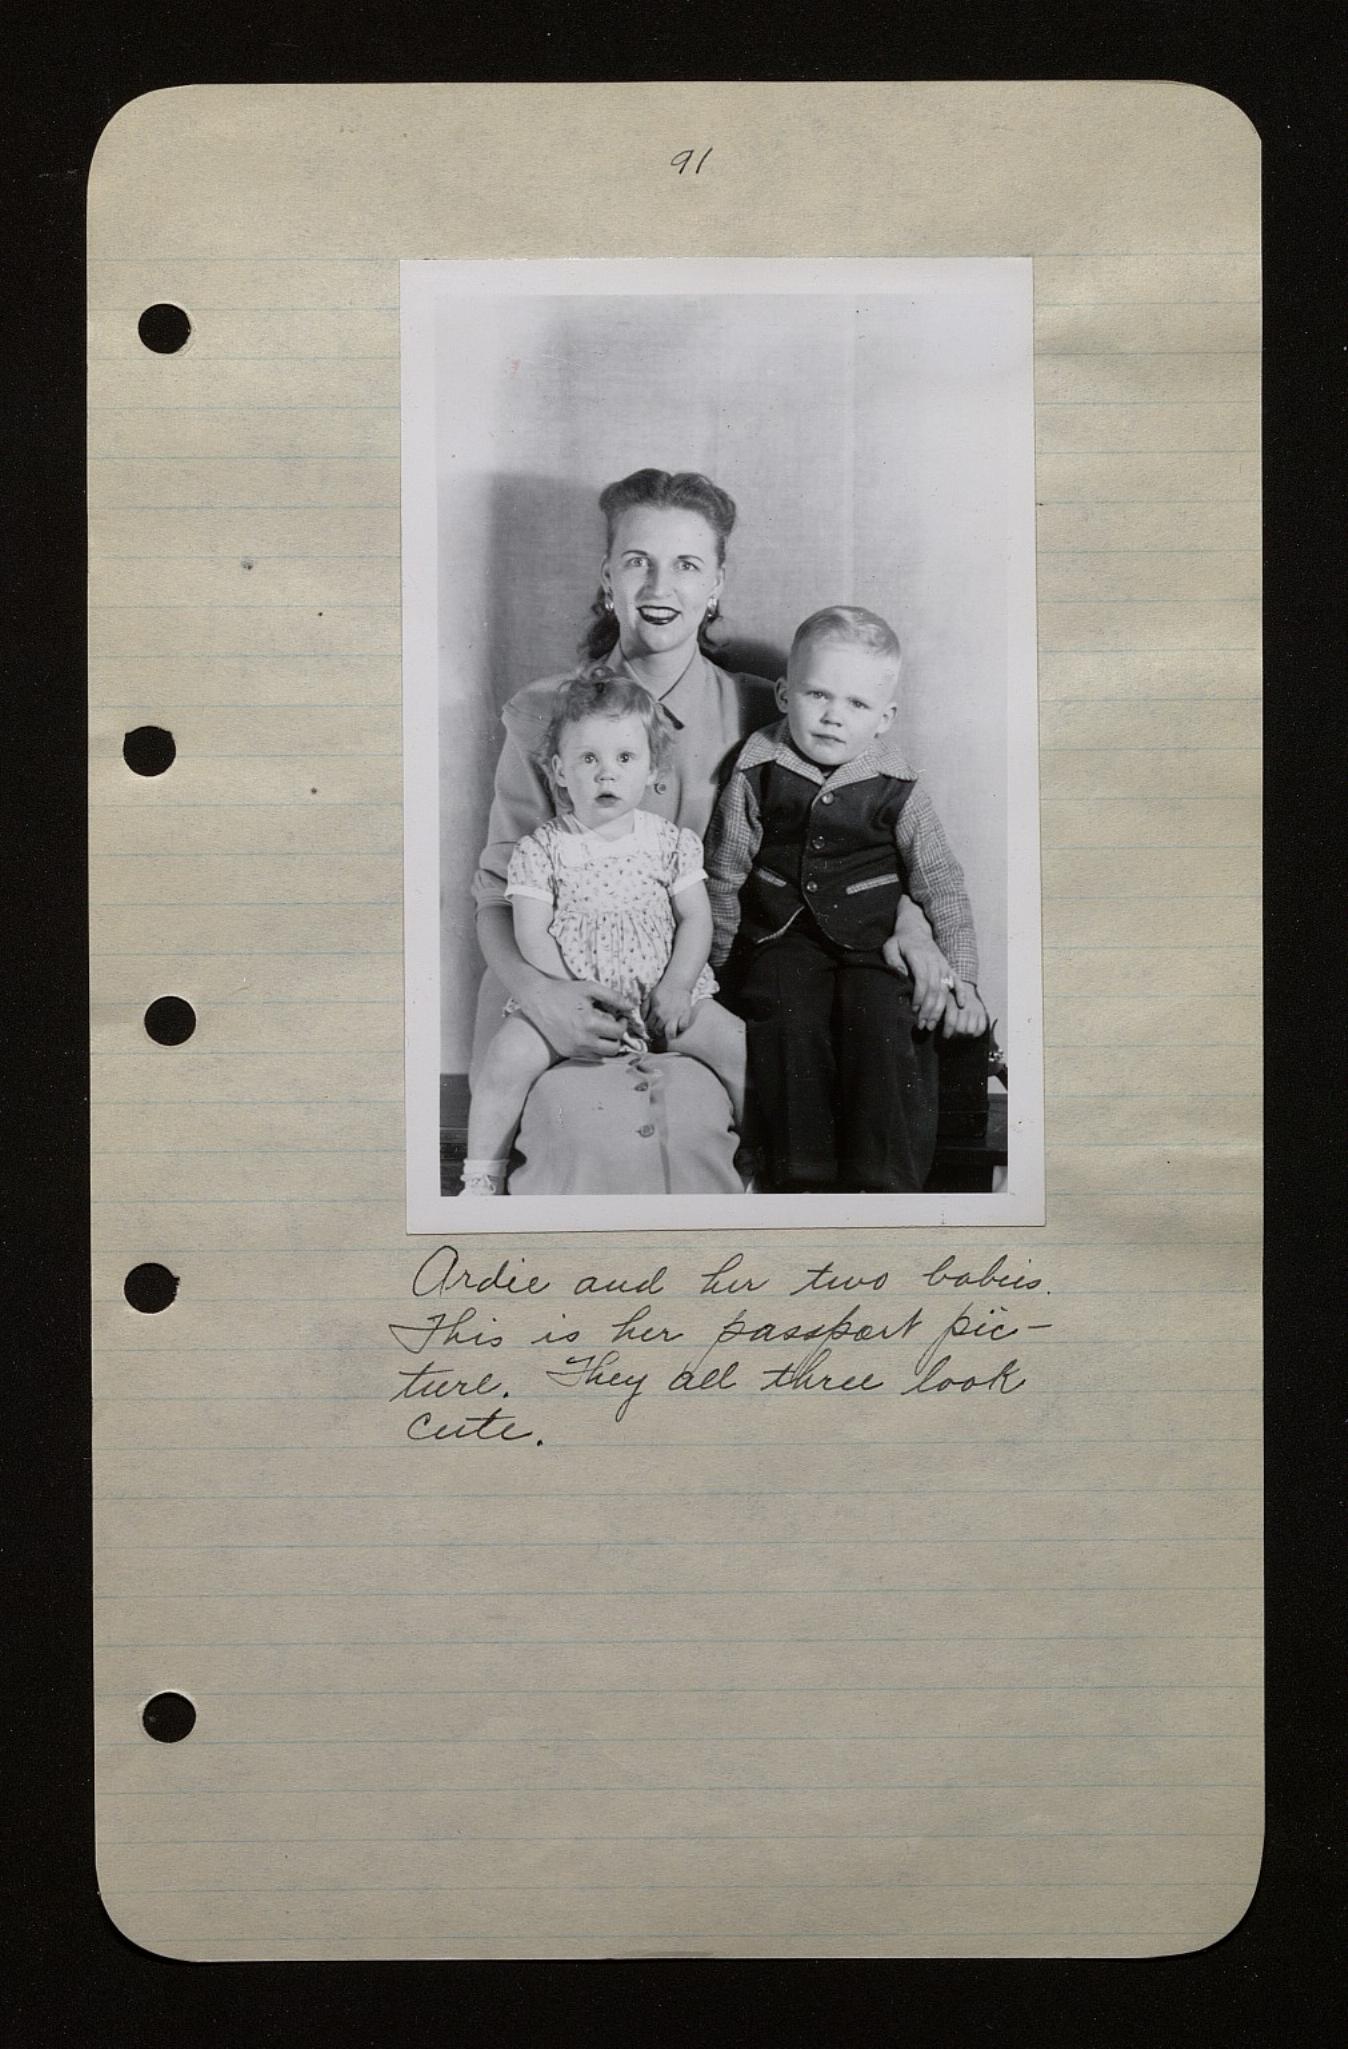 91
Ardie and her two babies.
This is her passport pic-
ture. They all three look
cute.